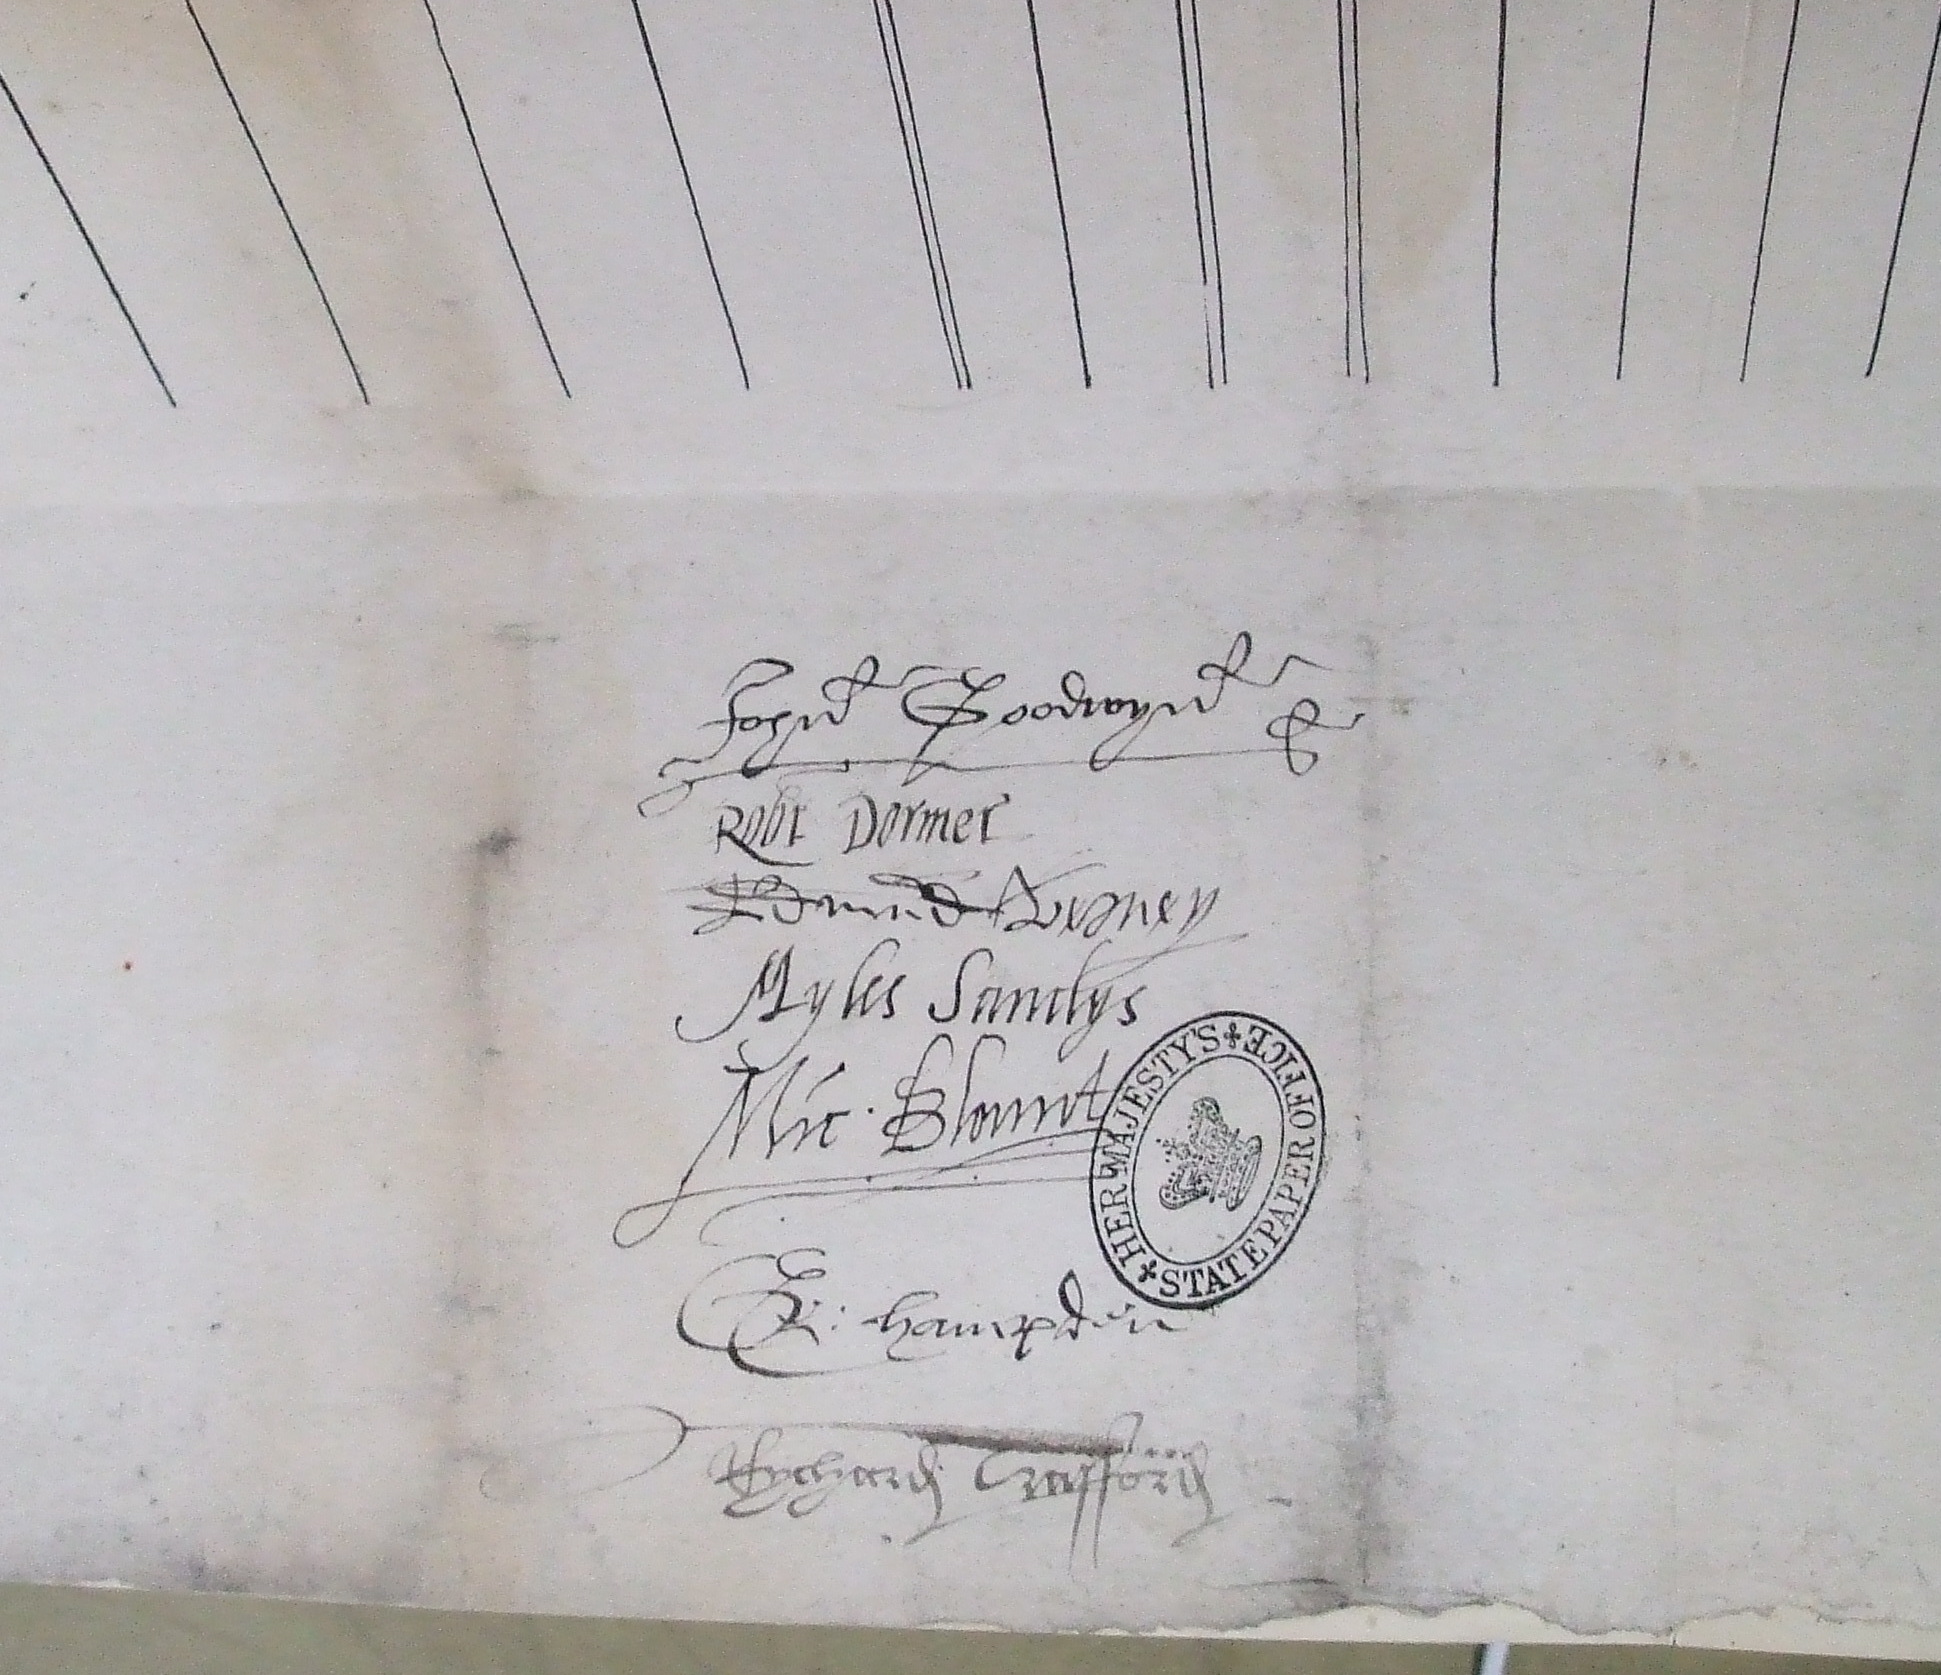 John Goodwyn
Robt Dormer
Edmund Verney
Myles Sandys
Mic. Blount
HER MAJESTY'S STATE PAPER OFFICE
E: hampden
Rychard Crafford